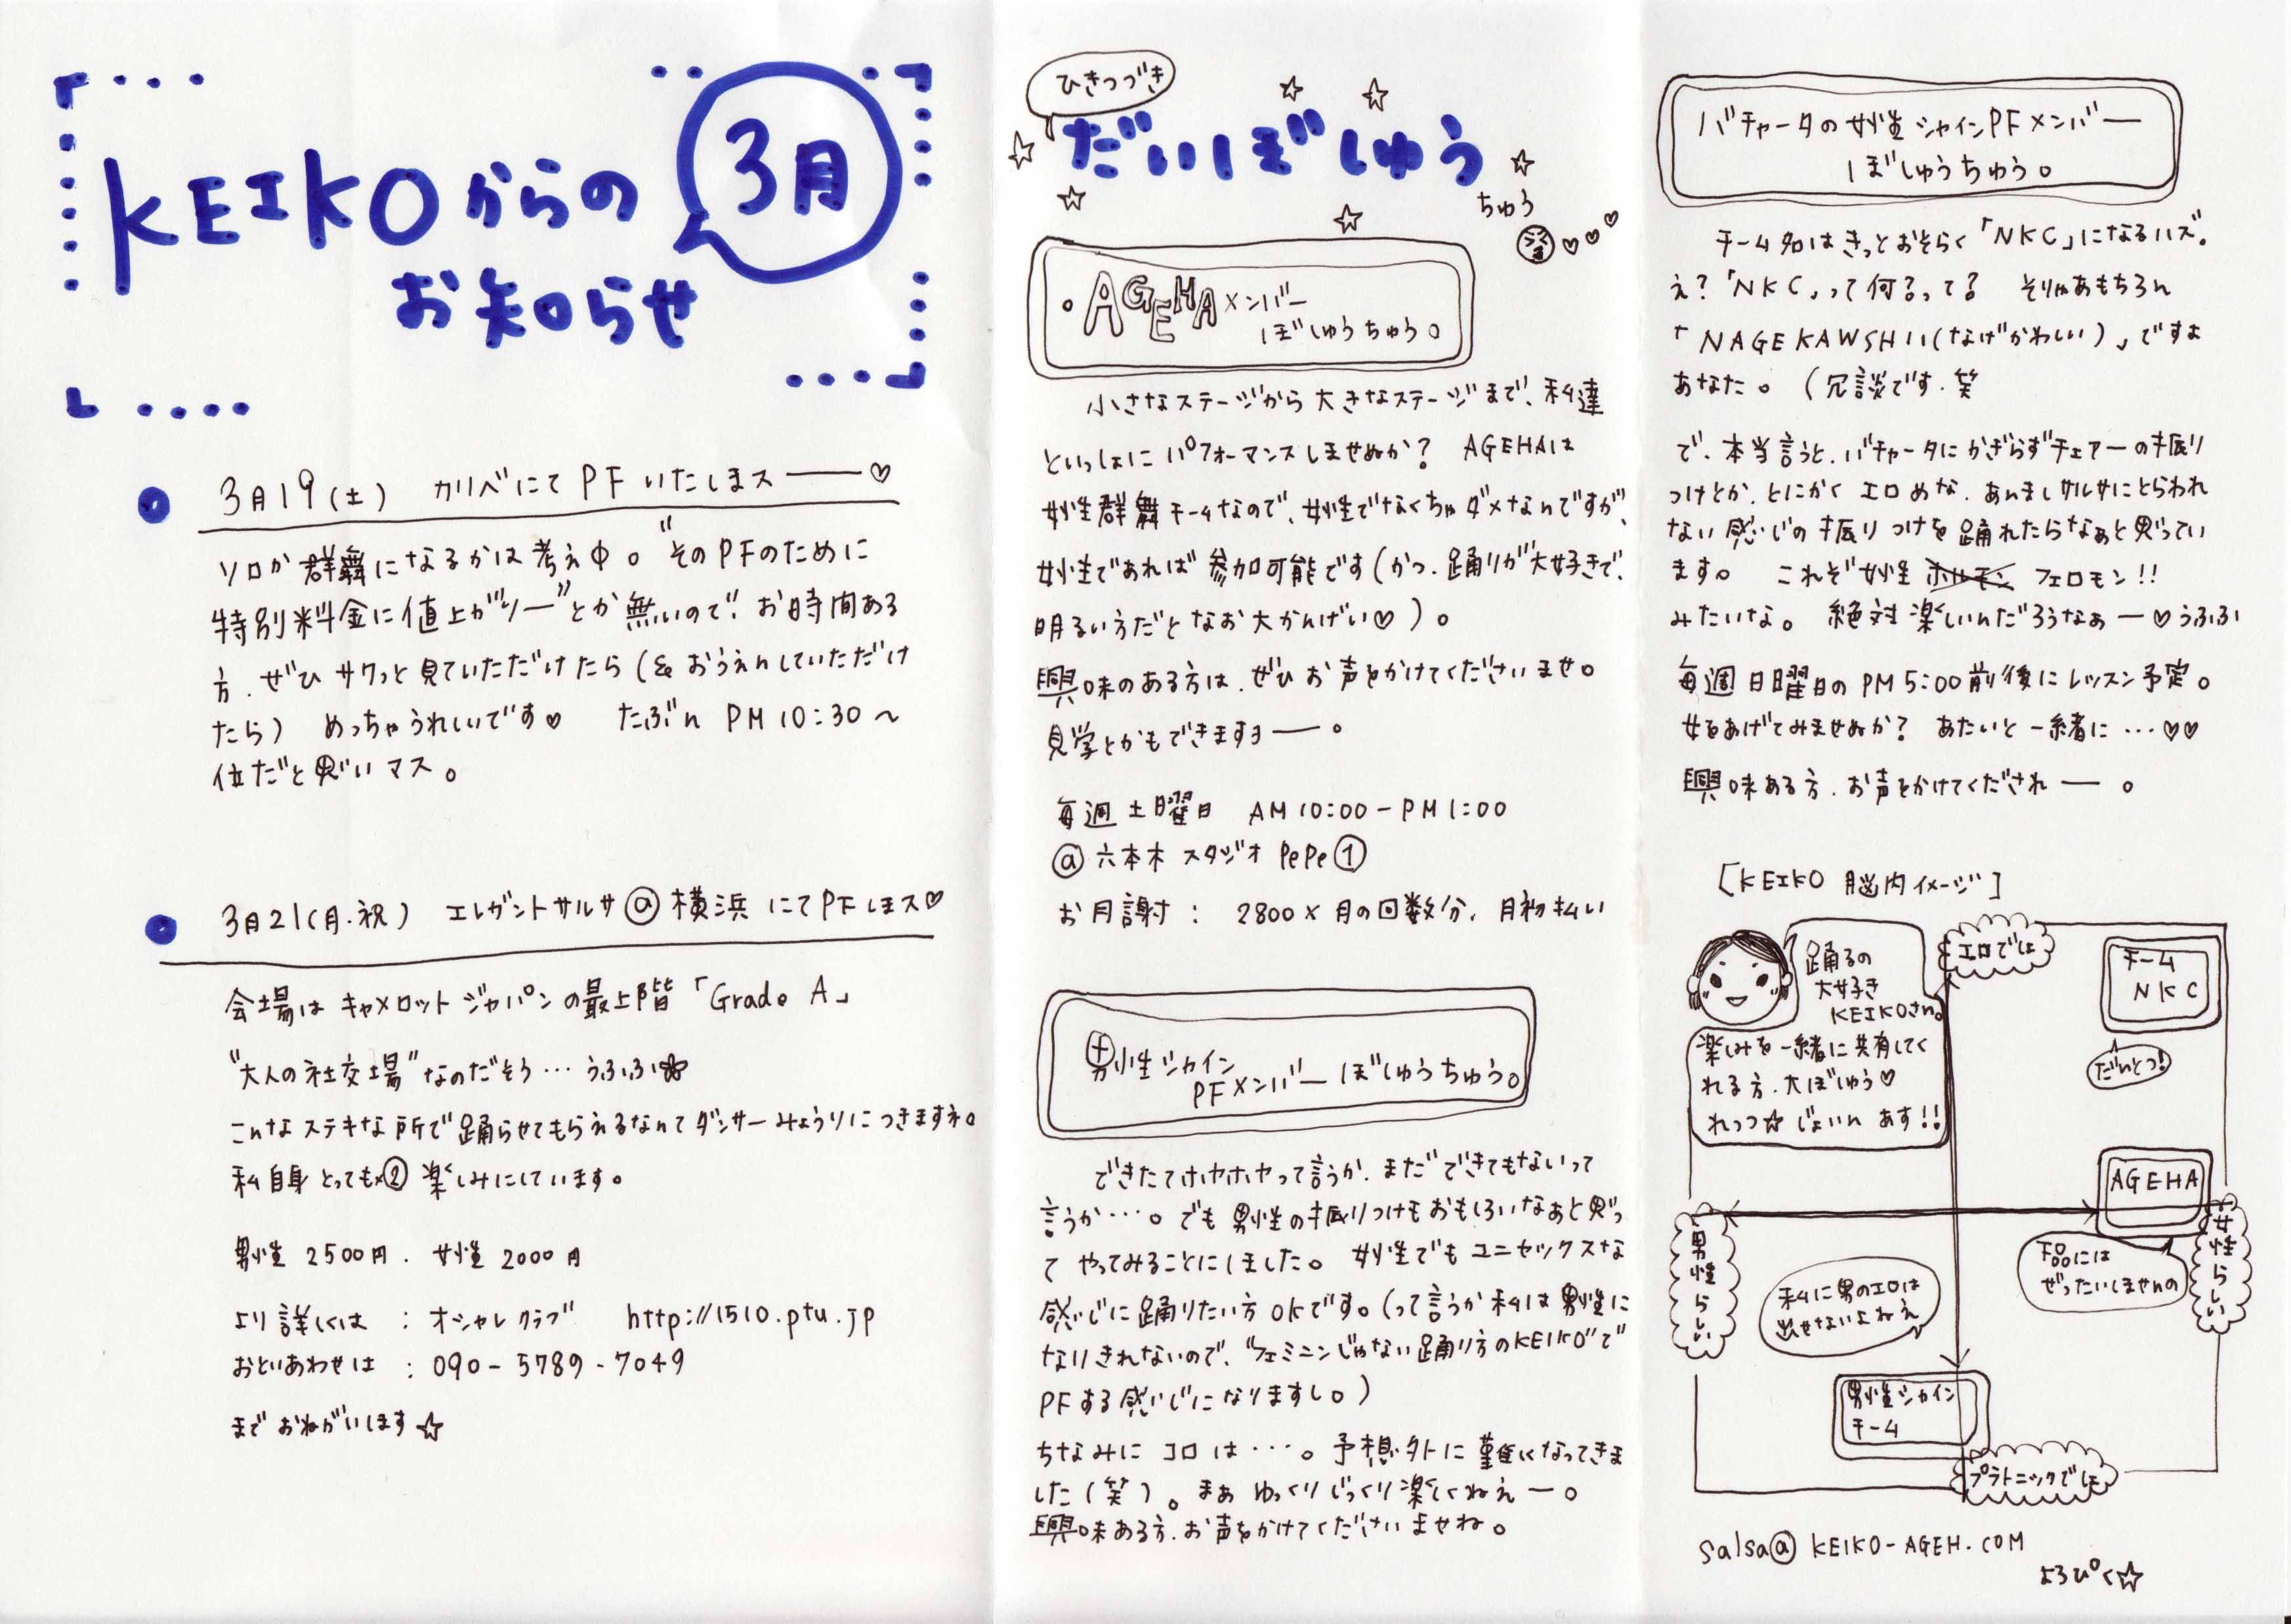 KEIKOからの
3月
お知らせ
3月19(土) カリベにてPFいたしまス――♡
ソロか群舞になるかは考え中。"そのPFのために
特別料金に値上がりー"とか無いので、お時間ある
方、ぜひサクっと見ていただけたら(&おうえんしていただけ
たら) めっちゃうれしいです♡ たぶん PM10:30〜
位だと思いマス。
3月21(月・祝) エレガントサルサ@横浜にてPFしまス♡
会場はキャメロットジャパンの最上階「Grade A」
"大人の社交場"なのだそう…うふふ☆
こんなステキな所で踊らせてもらえるなんてダンサーみょうりにつきますネ。
私自身とっても×②楽しみにしています。
男性 2500円、女性 2000円
より詳しくは : オシャレクラブ http://1510.ptu.jp
おといあわせは : 090-5789-7049
までおねがいします☆
ひきつづき
だいぼしゅう
ちゅう
♡♡♡
・AGEHAメンバー
ぼしゅうちゅう。
小さなステージから大きなステージまで、私達
といっしょにパフォーマンスしませぬか? AGEHAは
女性群舞チームなので、女性でなくちゃダメなんですが、
女性であれば参加可能です(かつ、踊りが大好きで、
明るい方だとなお大かんげい♡)。
興味のある方は、ぜひお声をかけてくださいませ。
見学とかもできますョ――。
毎週土曜日 AM10:00-PM1:00
@六本木スタジオPePe①
お月謝 : 2800×月の回数分、月初払い
男性シャイン
PFメンバーぼしゅうちゅう。
できたてホヤホヤって言うか、まだできてもないって
言うか…。でも男性の振りつけもおもしろいなぁと思っ
てやってみることにしました。女性でもユニセックスな
感じに踊りたい方OKです。(って言うか私は男性に
なりきれないので、"フェミニンじゃない踊り方のKEIKO"で
PFする感じになりますし。)
ちなみにコロは…。予想外に難しくなってきま
した(笑)。まぁゆっくりじっくり楽しくねぇー。
興味ある方、お声をかけてくださいませね。
バチャータの女性シャインPFメンバー
ぼしゅうちゅう。
チーム名はきっとおそらく「NKC」になるハズ。
え?「NKC」って何?って? そりゃあもちろん
「NAGEKAWSHII(なげかわしい)」ですよ
あなた。(冗談です、笑
で、本当言うと、バチャータにかぎらずチェアーの振り
つけとか、とにかくエロめな、あんましサルサにとらわれ
ない感じの振りつけを踊れたらなぁと思ってい
ます。 これぞ女性ホルモンフェロモン!!
みたいな。絶対楽しいんだろうなぁー♡うふふ
毎週日曜日のPM5:00前後にレッスン予定。
女をあげてみませぬか? あたいと一緒に…♡♡
興味ある方、お声をかけてくだされ――。
[KEIKO 脳内イメージ]
踊るの
大好き
KEIKOさん。
楽しみを一緒に共有してく
れる方、大ぼしゅう♡
れっつ☆じょいんあす!!
エロでしょ
チーム
NKC
だんとつ!
AGEHA
女性らしい
下品には
ぜったいしませんの
男性らしい
私に男のエロは
出せないよねえ
男性シャイン
チーム
プラトニックでしょ
salsa@KEIKO-AGEH.COM
よろぴく☆